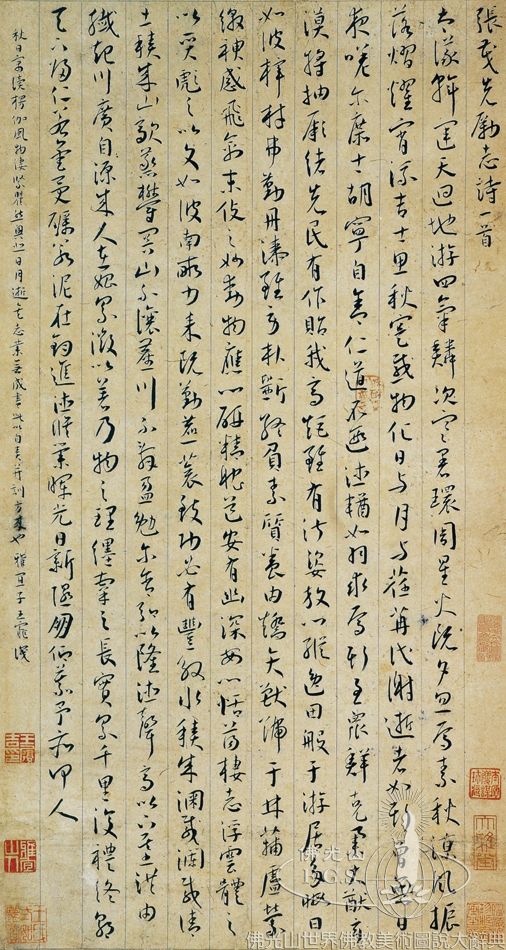 張茂先勵志詩一首
大儀斡運天迴地游四氣鱗次寒暑環周星火既夕忽焉素秋涼風振
落熠燿宵流吉士思秋寔感物化日与月与荏苒代謝逝者如斯曾無日
夜嗟尔庶士胡寧自舍仁道不遐德輶如羽求焉斯至眾鮮克舉大猷玄
漠將抽厥緒先民有作貽我高矩雖有淑姿放心縱逸田般于游居多暇日
如彼梓材弗勤丹漆雖勞朴斲終負素質養由矯矢獸號于林蒲盧縈
繳神感飛禽末伎之妙動物應心研精耽道安有幽深安心恬蕩棲志浮雲體之
以質彪之以文如彼南畝力耒既勤藨蓘致功必有豐殷水積成淵載瀾載清
土積成山歊蒸鬱冥山不讓塵川不辭盈勉尔含弘以隆德聲高以下基洪由
纖起川廣自源成人在始累微以著乃物之理纆牽之長實累千里復禮終朝
天下歸仁若金受礪若泥在鈞進德脩業暉光日新隰朋仰慕予亦何人
秋日寫讀楞伽風物淒緊日月逝矣志業無成書此以自責并訓方來也 雅宜子王寵識
佛光山
F.G.S.
佛光山世界佛教美術圖說大辭典